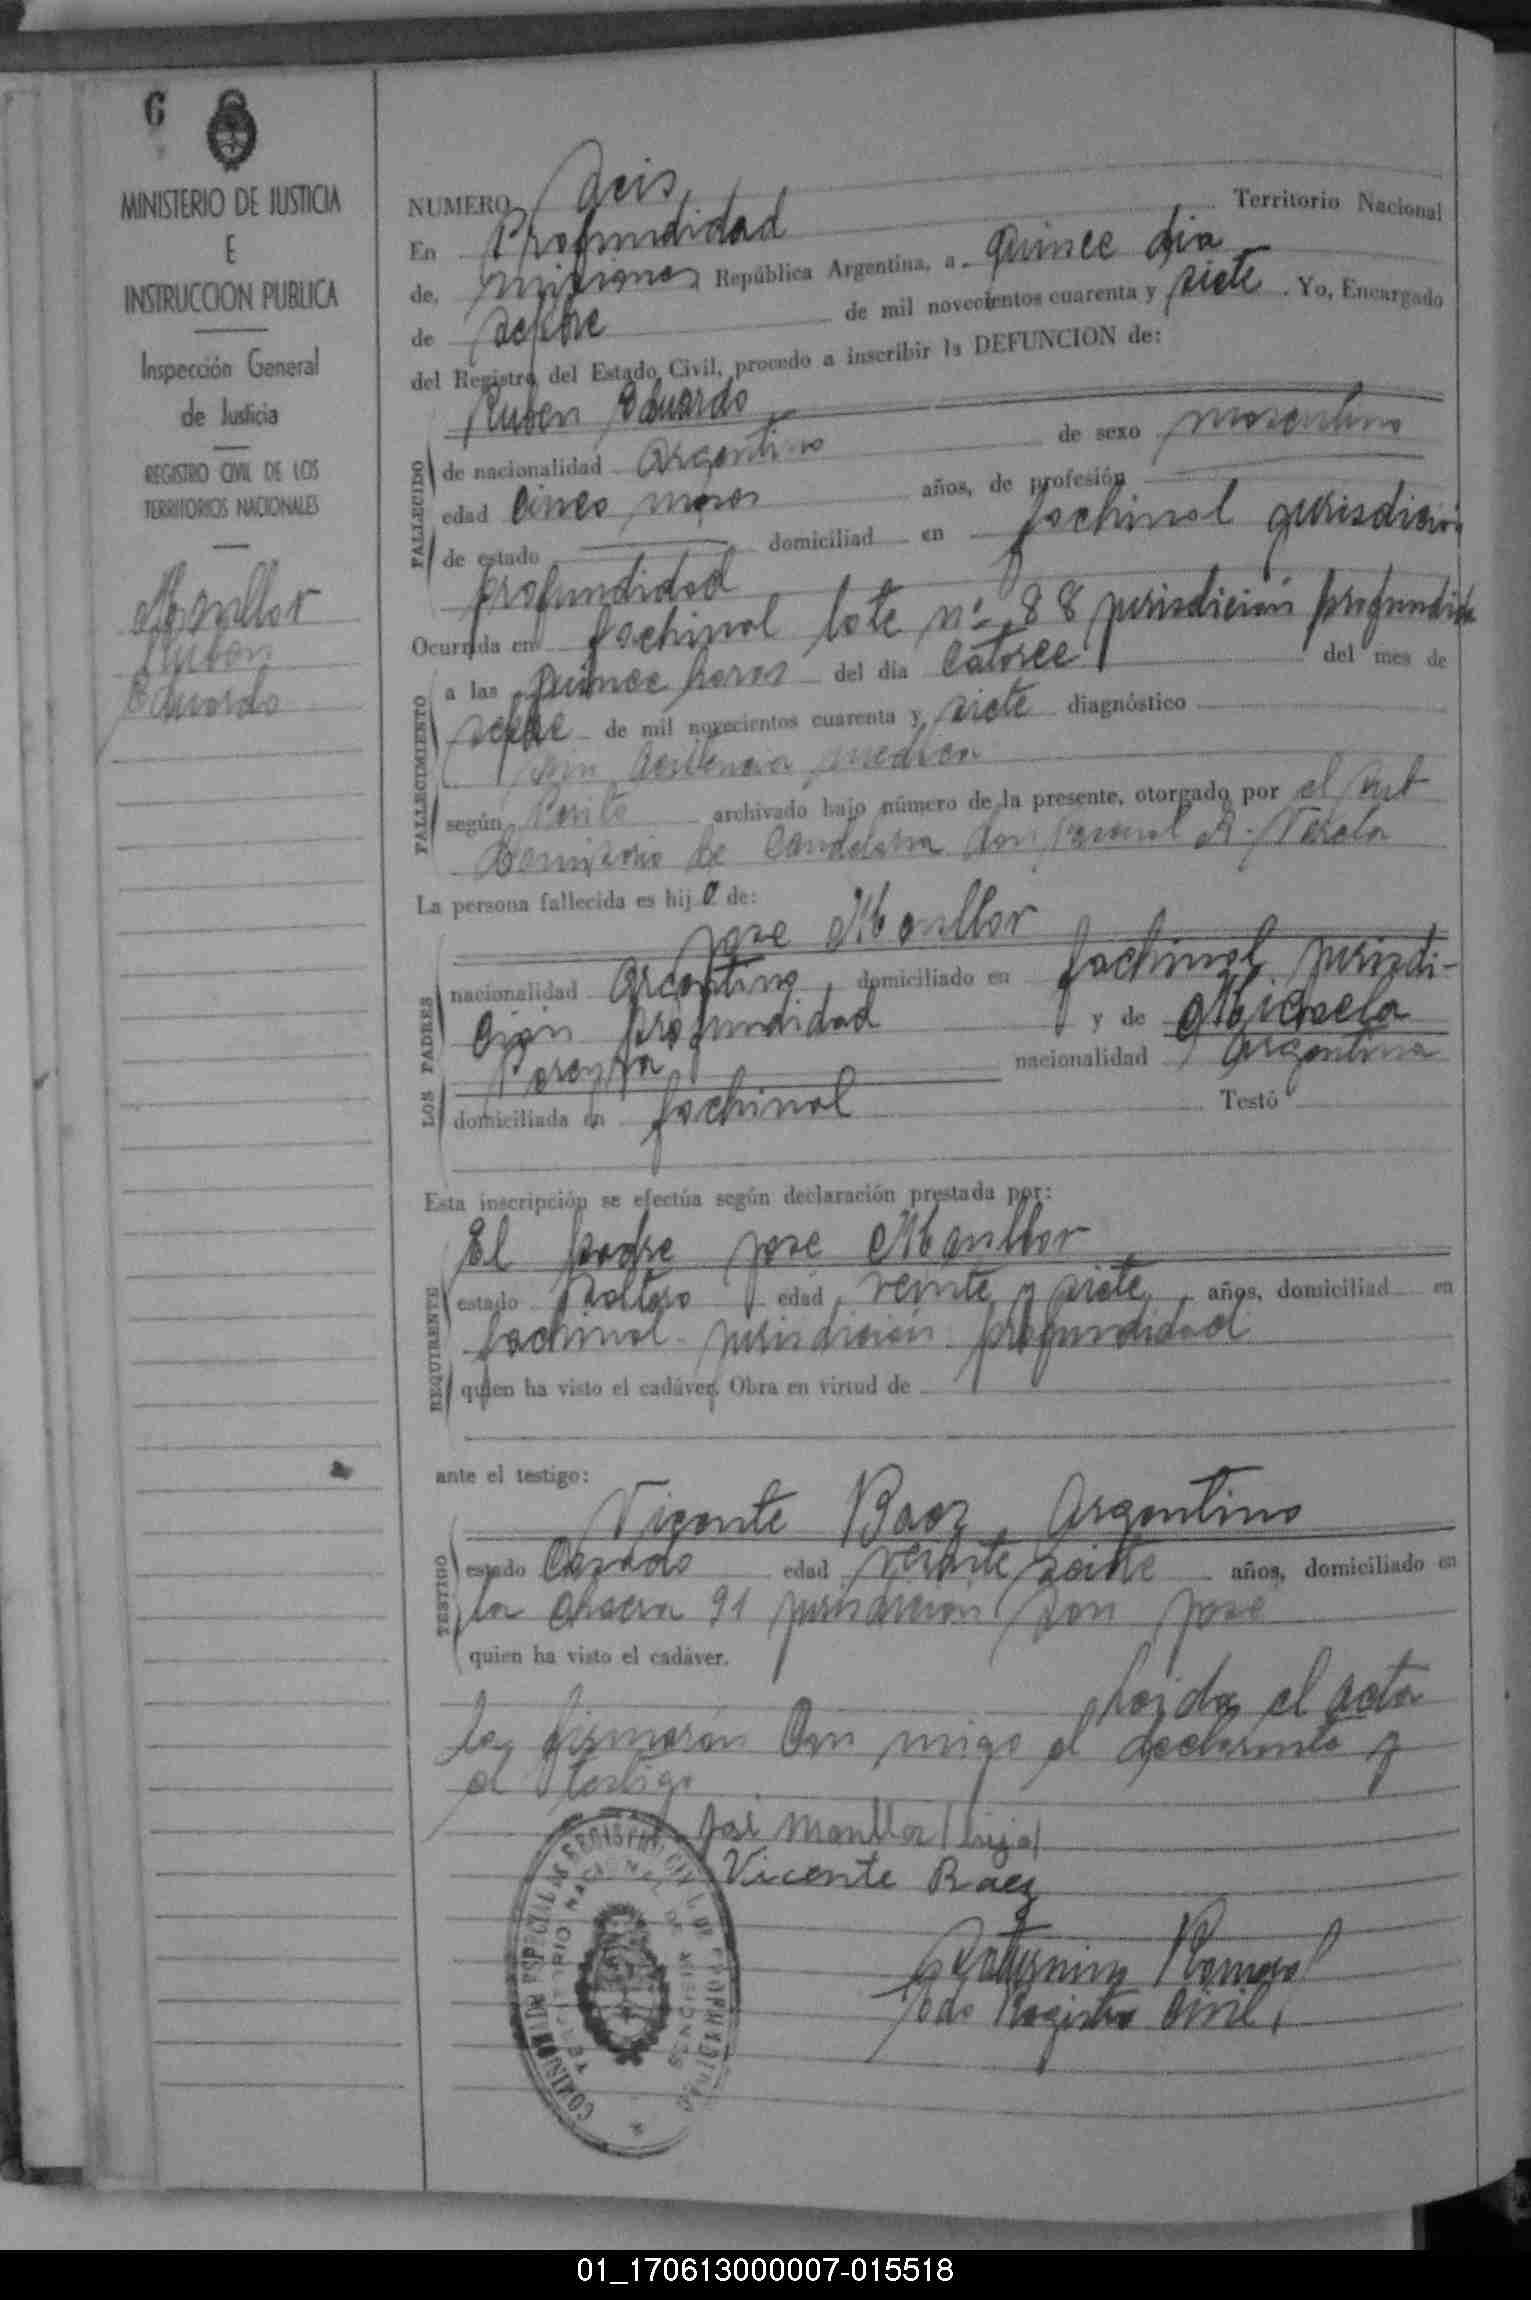 6
MINISTERIO DE JUSTICIA
E
INSTRUCCION PUBLICA
Inspección General
de Justicia
REGISTRO CIVIL DE LOS
TERRITORIOS NACIONALES
Manllor
Ruben
Eduardo
NUMERO Seis Territorio Nacional
En Profundidad
de, misiones República Argentina, a quince dia
de sepbre de mil novecientos cuarenta y siete . Yo, Encargado
del Registro del Estado Civil, procedo a inscribir la DEFUNCION de:
Ruben Eduardo
FALLECIDO
de nacionalidad argentino de sexo masculino
edad cinco meses años, de profesión
de estado domiciliad en fachinal jurisdicion
profundidad
Ocurrida en fachinal lote nº 88 jurisdición profundida
FALLECIMIENTO
a las quince horas del día catorce del mes de
sepbre de mil novecientos cuarenta y siete diagnóstico
sin asistencia medica
según archivado bajo número de la presente, otorgado por el sub
Comisario de Candelaria don A.
La persona fallecida es hijo de:
LOS PADRES
jose Manllor
nacionalidad argentino domiciliado en fachinal jurisdi-
cion profundidad y de Micaela
nacionalidad argentina
domiciliada en fachinal Testó
Esta inscripción se efectúa según declaración prestada por:
REQUIRENTE
El padre jose Manllor
estado soltero edad veinte y siete años, domiciliad en
fachinal jurisdicion profundidad
quien ha visto el cadáver. Obra en virtud de
ante el testigo:
TESTIGO
Vicente Baez Argentino
estado Casado edad veinte años, domiciliado en
la chacra 91 jurisdicion San jose
quien ha visto el cadáver.
Leida el acta
la firmaron Con migo el declarante y
el testigo
José Manllor (hijo)
Vicente Baez
Saturnino Romero
Edo Registro Civil,
COMISION DE ESPECIAL AS REGISTRO CIVIL DE PROFUNDIDAD
TERRITORIO NACIONAL DE MISIONES
01_170613000007-015518